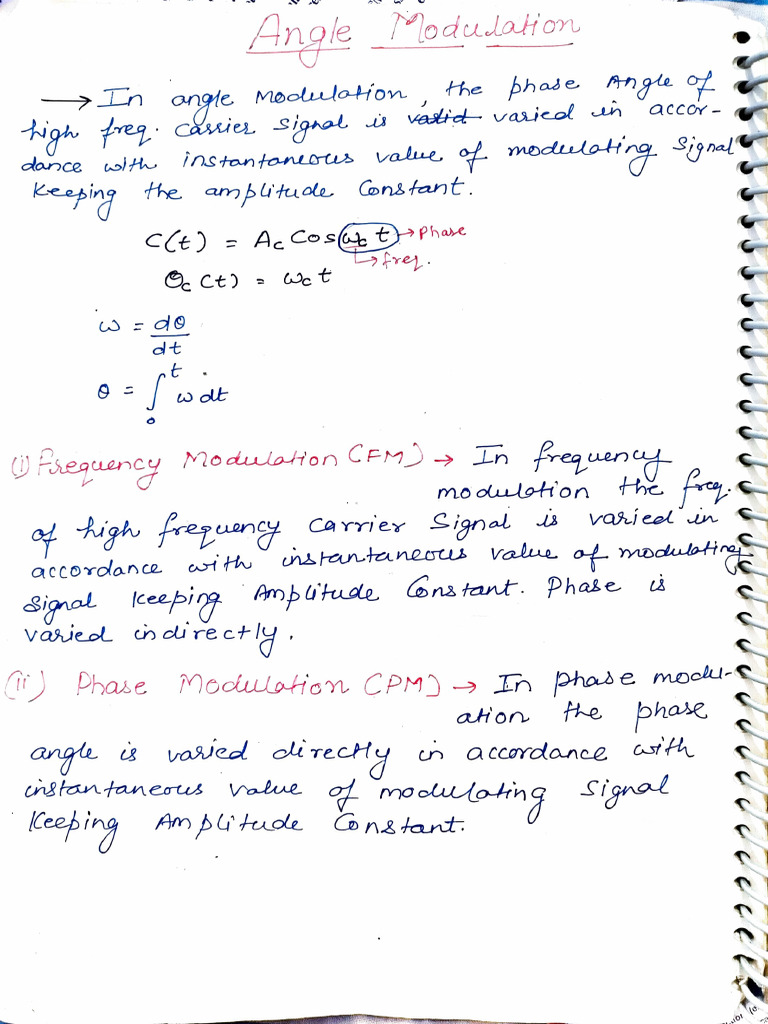 Angle Modulation
→ In angle Modulation, the phase Angle of
high freq. Carrier Signal is valid varied in accor-
dance with instantaneous value of modulating Signal
Keeping the amplitude Constant.
C(t) = Ac Cos ωc t → Phase
↳ freq.
θc (t) = ωc t
ω = dθ
dt
θ = ∫₀ᵗ ω dt
(i) Frequency Modulation (FM) → In frequency
modulation the freq.
of high frequency Carrier Signal is varied in
accordance with instantaneous value of modulating
Signal Keeping Amplitude Constant. Phase is
varied indirectly.
(ii) Phase Modulation (PM) → In phase modu-
ation the phase
angle is varied directly in accordance with
instantaneous value of modulating Signal
Keeping Amplitude Constant.